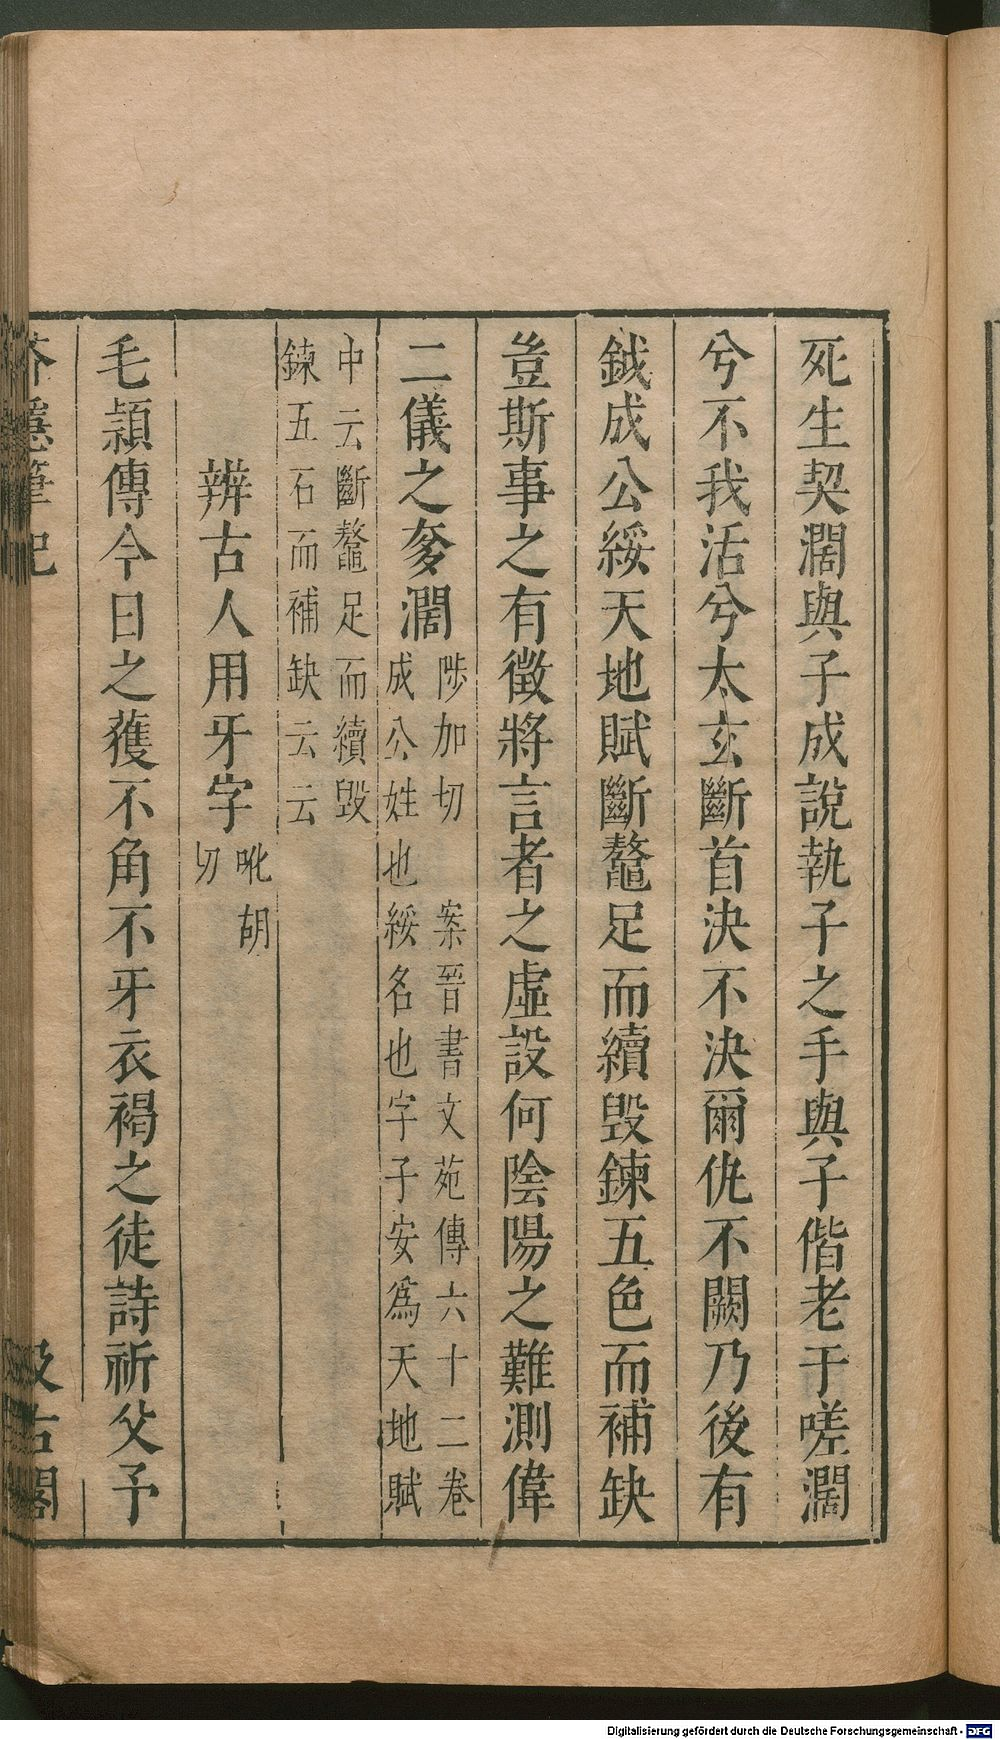 死生契濶與子成說執子之手與子偕老于嗟濶
兮不我活兮太玄斷首決不決爾仇不闕乃後有
鉞成公綏天地賦斷鼇足而續毀鍊五色而補缺
豈斯事之有徵將言者之虛設何陰陽之難測偉
二儀之奓濶
陟加切 案晉書文苑傳六十二卷
成公姓也綏名也字子安為天地賦
中云斷鼇足而續毀
鍊五石而補缺云云
辨古人用牙字
吪胡
切
毛穎傳今日之獲不角不牙衣褐之徒詩祈父予
芥隱筆記
汲古閣
Digitalisierung gefördert durch die Deutsche Forschungsgemeinschaft - DFG